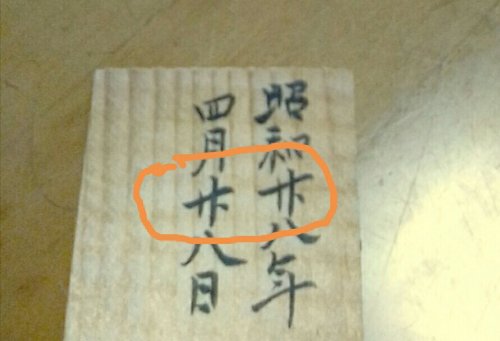 昭和廿八年
四月廿八日